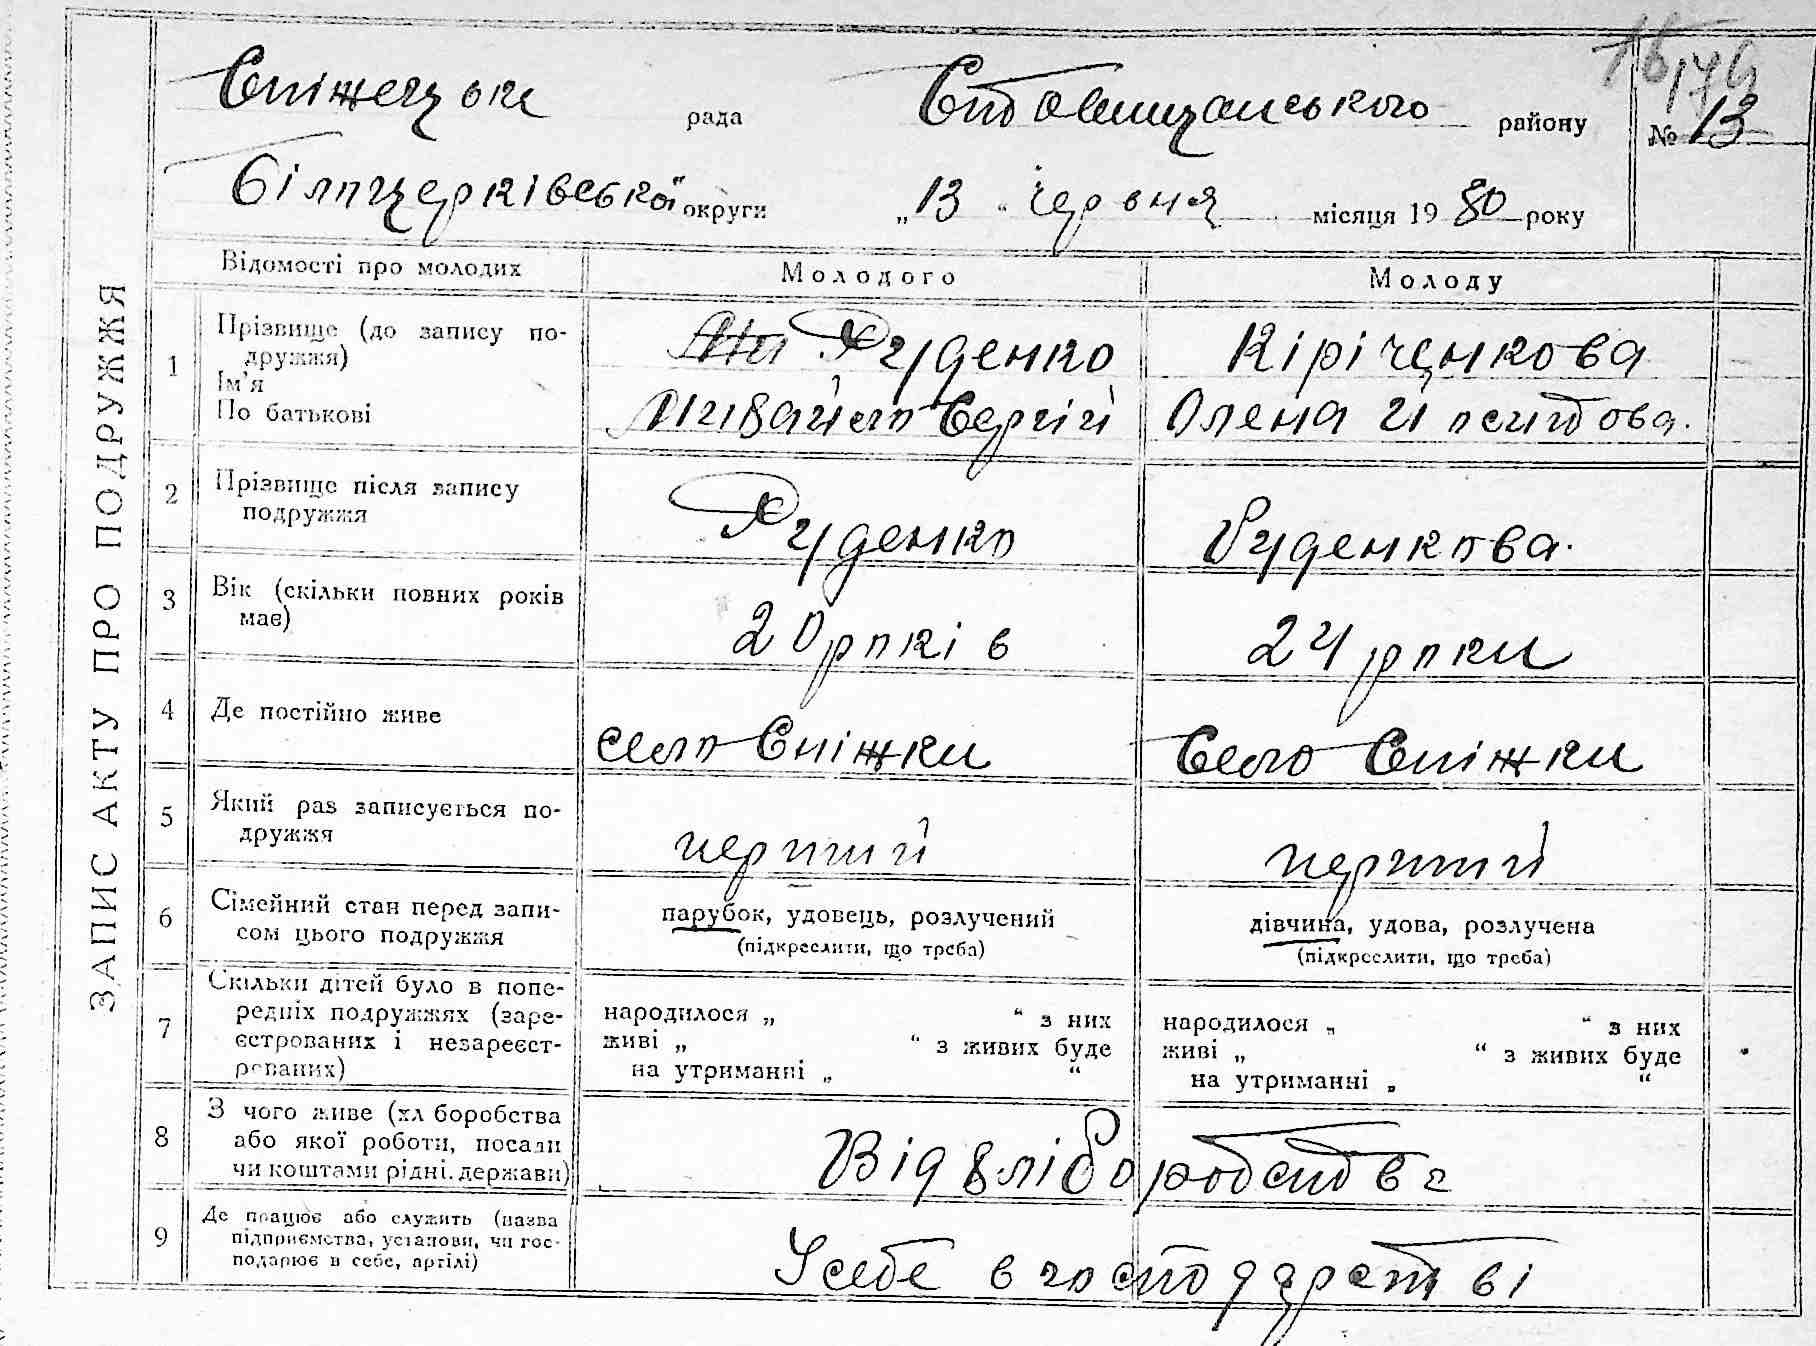 Сніжецька рада Ставищанського району № 13
Білоцерківської округи „13“ червня місяця 1930 року
ЗАПИС АКТУ ПРО ПОДРУЖЖЯ
Відомості про молодих Молодого Молоду
1 Прізвище (до запису по-
дружжя)
Ім'я
По батькові
Руденко
Михайло Сергій
Кіріченкова
Олена Йоситова.
2 Прізвище після запису
подружжя
Руденко
Руденкова.
3 Вік (скільки повних років
має)
20 років
24 роки
4 Де постійно живе
село Сніжки
Село Сніжки
5 Який раз записується по-
дружжя
перший
перший
6 Сімейний стан перед запи-
сом цього подружжя
парубок, удовець, розлучений
(підкреслити, що треба)
дівчина, удова, розлучена
(підкреслити, що треба)
7 Скільки дітей було в попе-
редніх подружжях (заре-
єстрованих і незареєст-
рованих)
народилося „ “ з них
живі „ “ з живих буде
на утриманні „ “
народилося „ “ з них
живі „ “ з живих буде
на утриманні „ “
8 З чого живе (хліборобства
або якої роботи, посади
чи коштами рідні, держави)
Від хліборобства
9 Де працює або служить (назва
підприємства, установи, чи гос-
подарює в себе, артілі)
У себе в господарстві